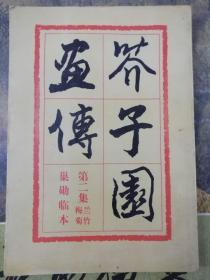 芥子園
畫傳
第二集 兰竹梅菊
巢勋临本